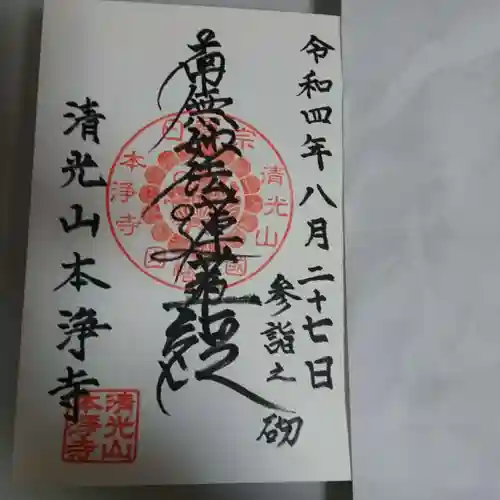 令和四年八月二十七日
参詣之砌
南無妙法蓮華経
清光山本浄寺
清光山
本浄寺
清光山
本浄寺